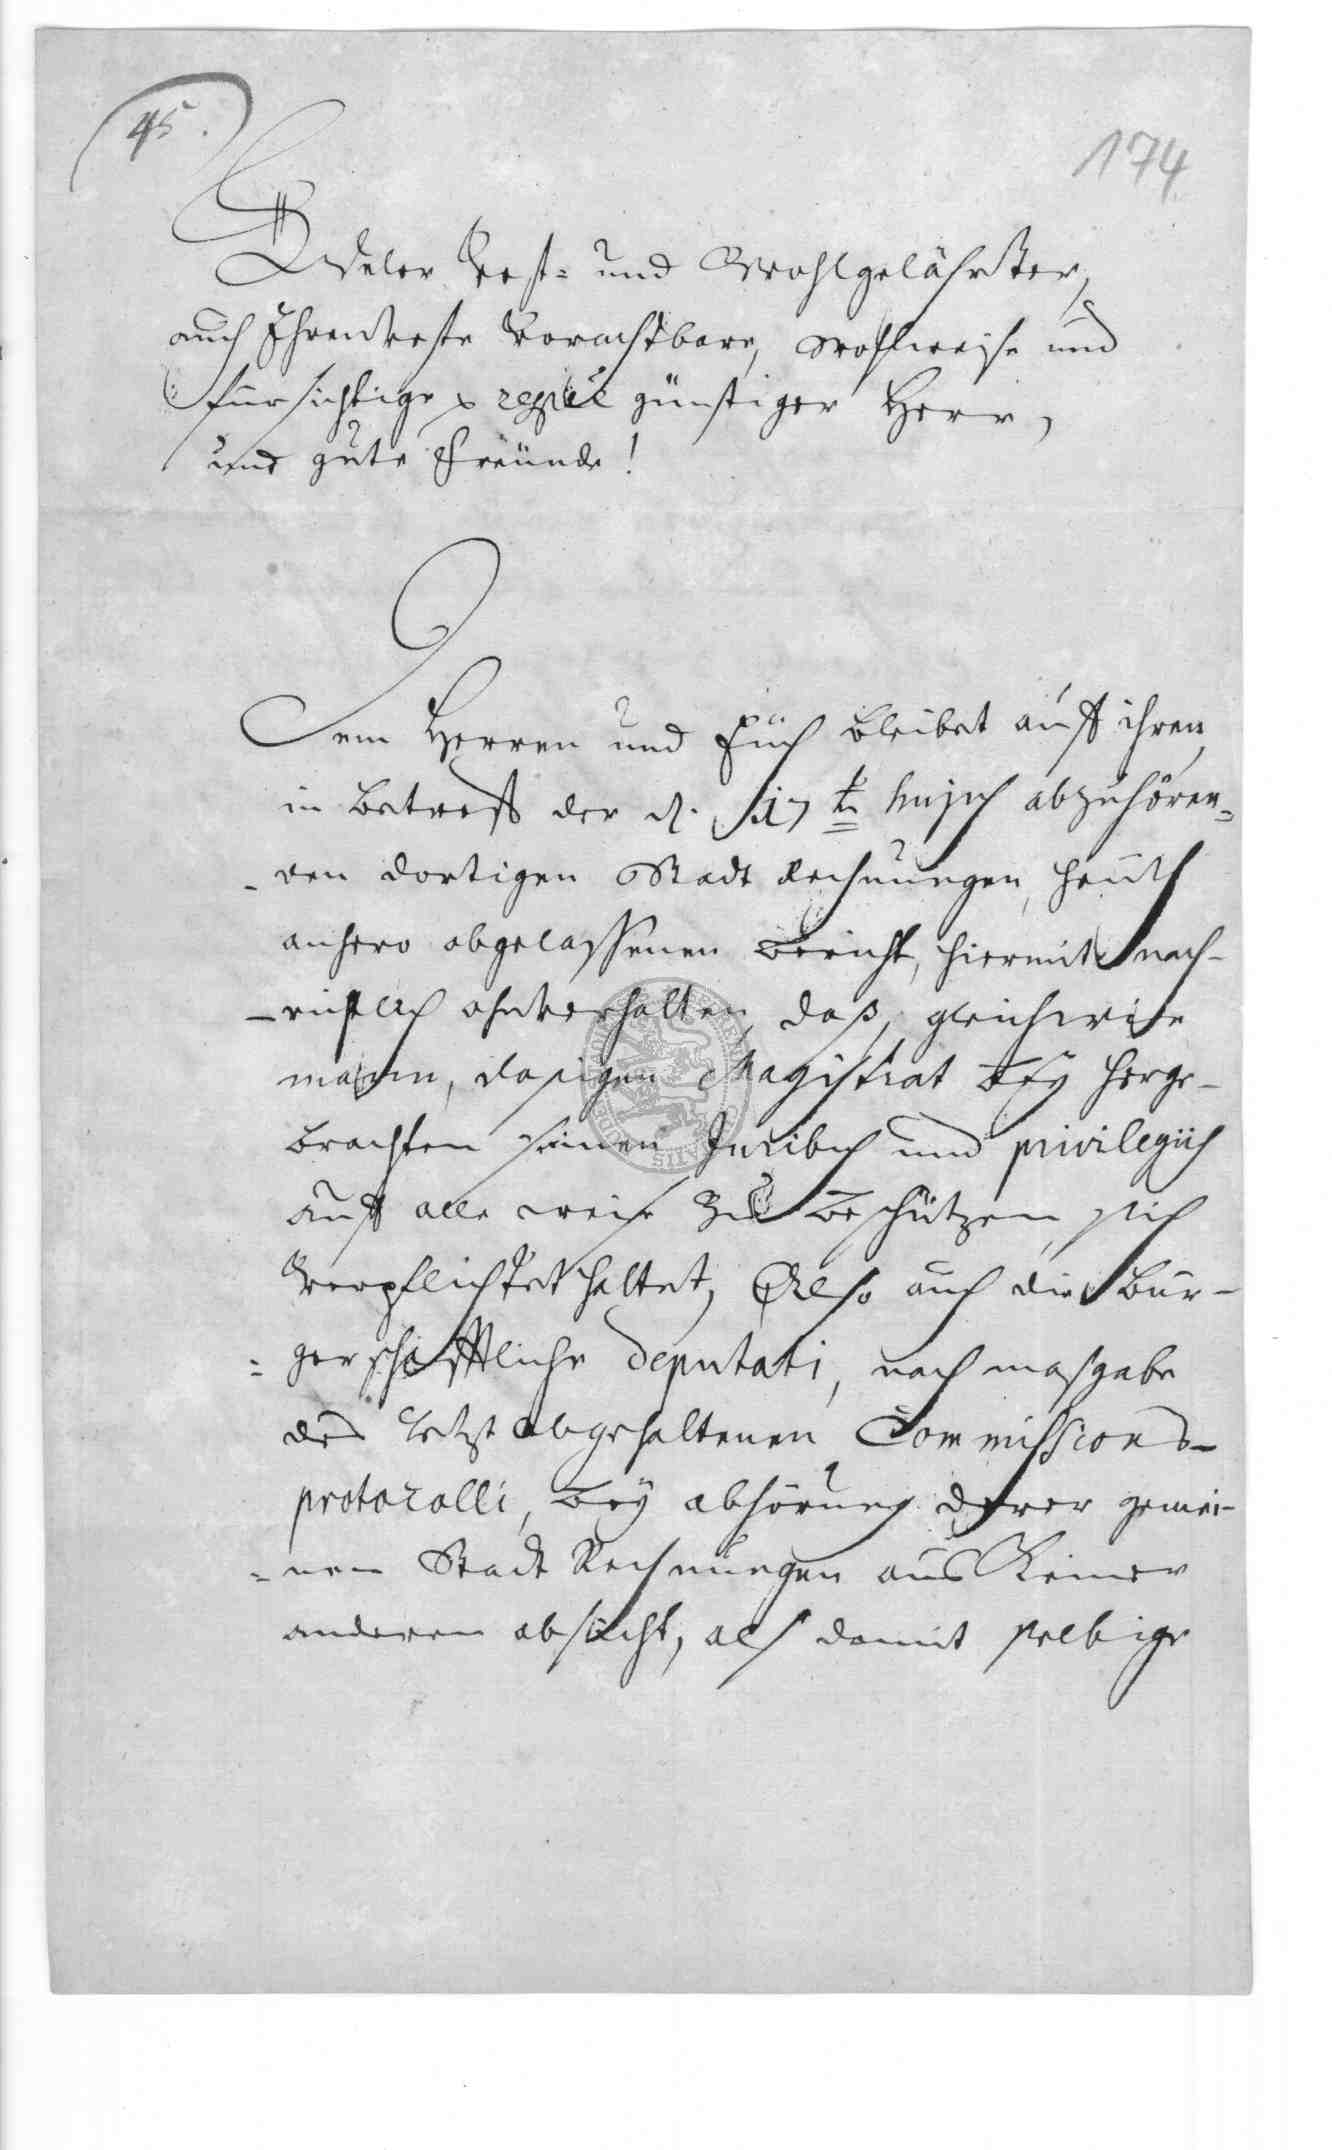 45.
174
Edeler Vest- und Wohlgelährter,
auch Ehrenveste Vorachtbare, wohlweise und
fürsichtige respve günstiger Herr,
und gute Freunde!
Dem Herren und Euch bleibet auff ihren,
in betreff der d. 17t hujus abzuhören-
-den dortigen Stadt Rechnungen, heuth
anhero abgelassenen bericht, hiermit nach-
-richtlich ohnverhalten, daß, gleichwie
mann, dasigen Magistrat bey herge-
brachten seinen Juribus und privilegiis
auff alle weise zu beschützen sich
verpflichtet haltet, Also auch die Bur-
-gerschafftliche deputati, nach masgabe
des letzt abgehaltenen Commissions-
protocolli, bey abhörung derer gemei-
-nen Stadt Rechnungen aus keiner
anderen absicht, als damit selbige